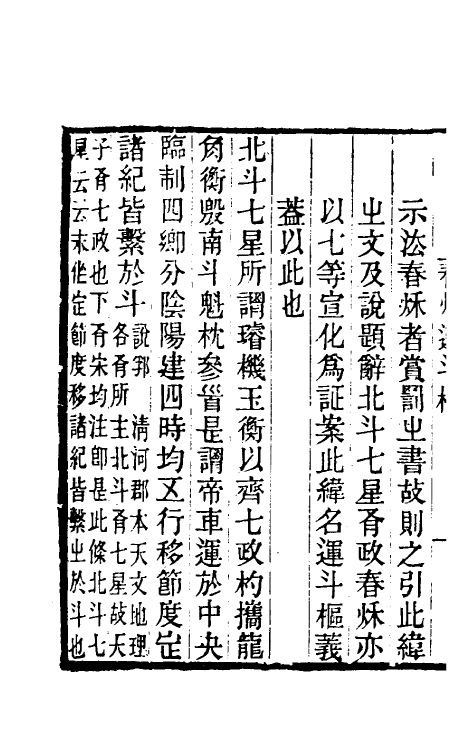 示㳒春秌者賞罰㞢書故則之引此緯
㞢文及說題辭北斗七星有政春秌亦
以七等宣化爲証案此緯名運斗樞義
蓋以此也
北斗七星所謂璿機玉衡以齊七政杓攜龍
角衡殷南斗魁枕參首是謂帝車運於中央
臨制四鄉分陰陽建四時均五行移節度定
諸紀皆繫於斗說郛 清河郡本天文地理
各有所主北斗有七星故天
子有七政也下有宋均注即是此條北斗七
星云云末作定節度移諸紀皆繫㞢於斗也